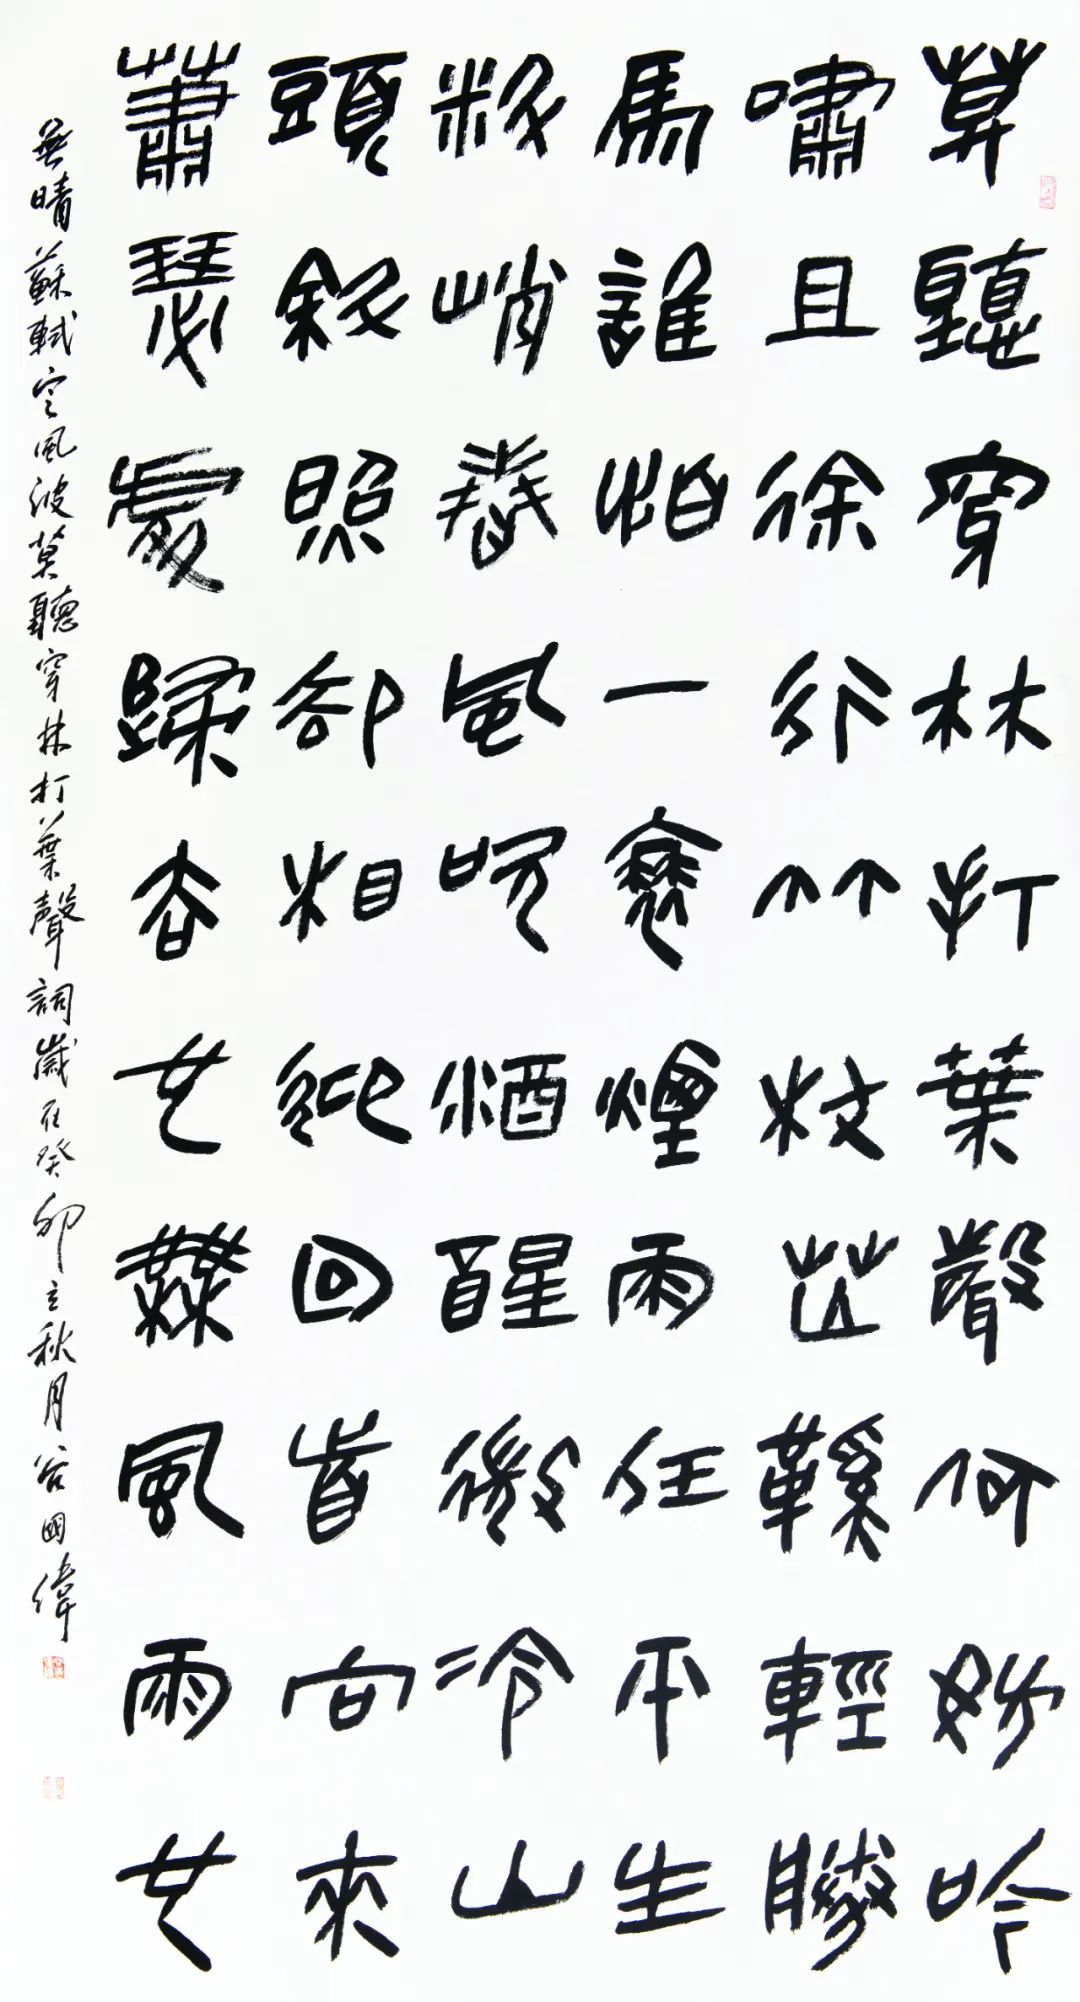 莫聽穿林打葉聲何妨吟
嘯且徐行竹杖芒鞵輕勝
馬誰怕一蓑煙雨任平生
料峭春風吹酒醒微冷山
頭斜照卻相迎回首向來
蕭瑟處歸去也無風雨也
無晴蘇軾定風波莫聽穿林打葉聲詞歲在癸卯立秋月谷國偉